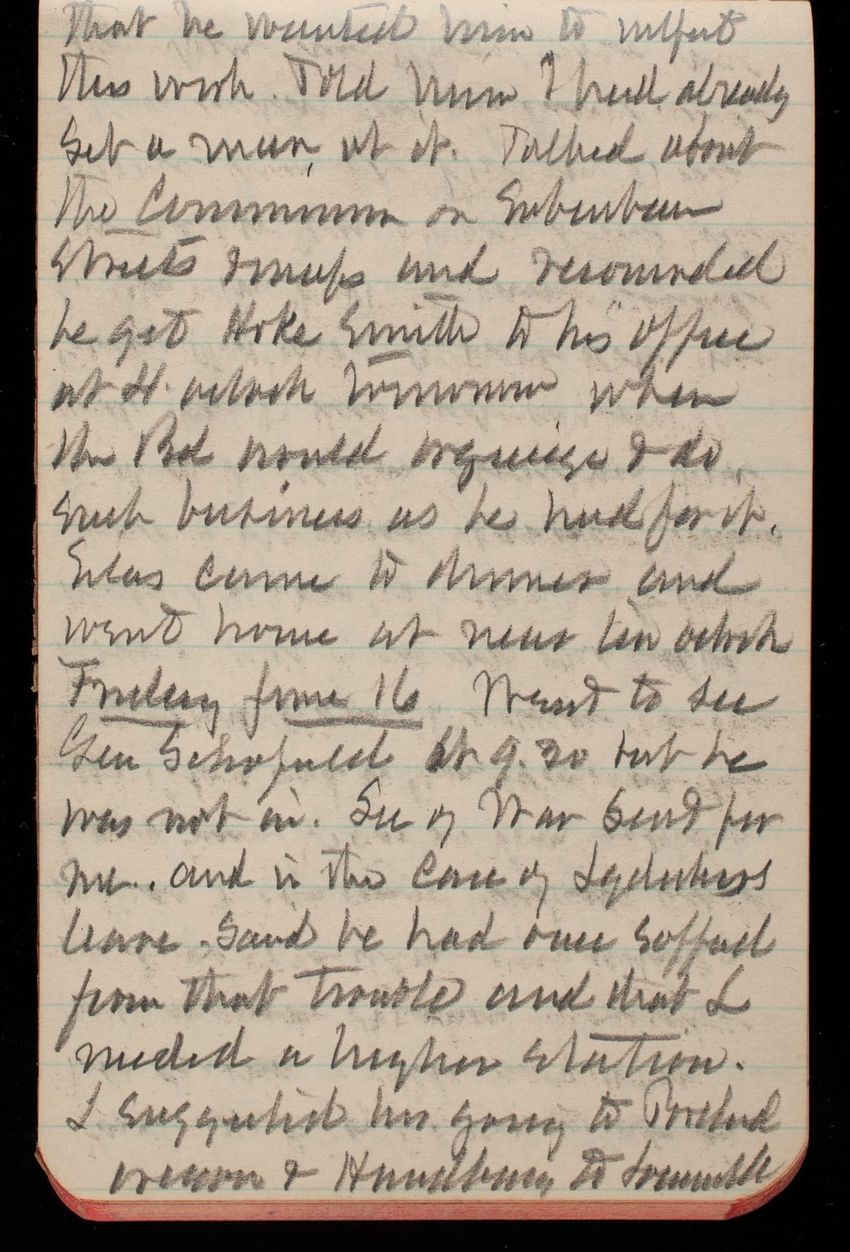 that he wanted him to
this work. Told him I had already
set a man at it. Talked about
the Commission on Suburban
Streets & maps and recommended
he get Hoke Smith to his office
at 4. oclock tomorrow when
the Bd would organize & do
such business as he had for it.
Silas came to dinner and
went home at near ten oclock
Friday June 16 Went to see
Gen Schofield at 9.30 but he
was not in. Sec of War Send for
me. and in the case of Lydeckers
leave. Said he had once suffed
from that trouble and that L
needed a higher station.
I suggested his going to Portland
oregon & Handbury to Louisville